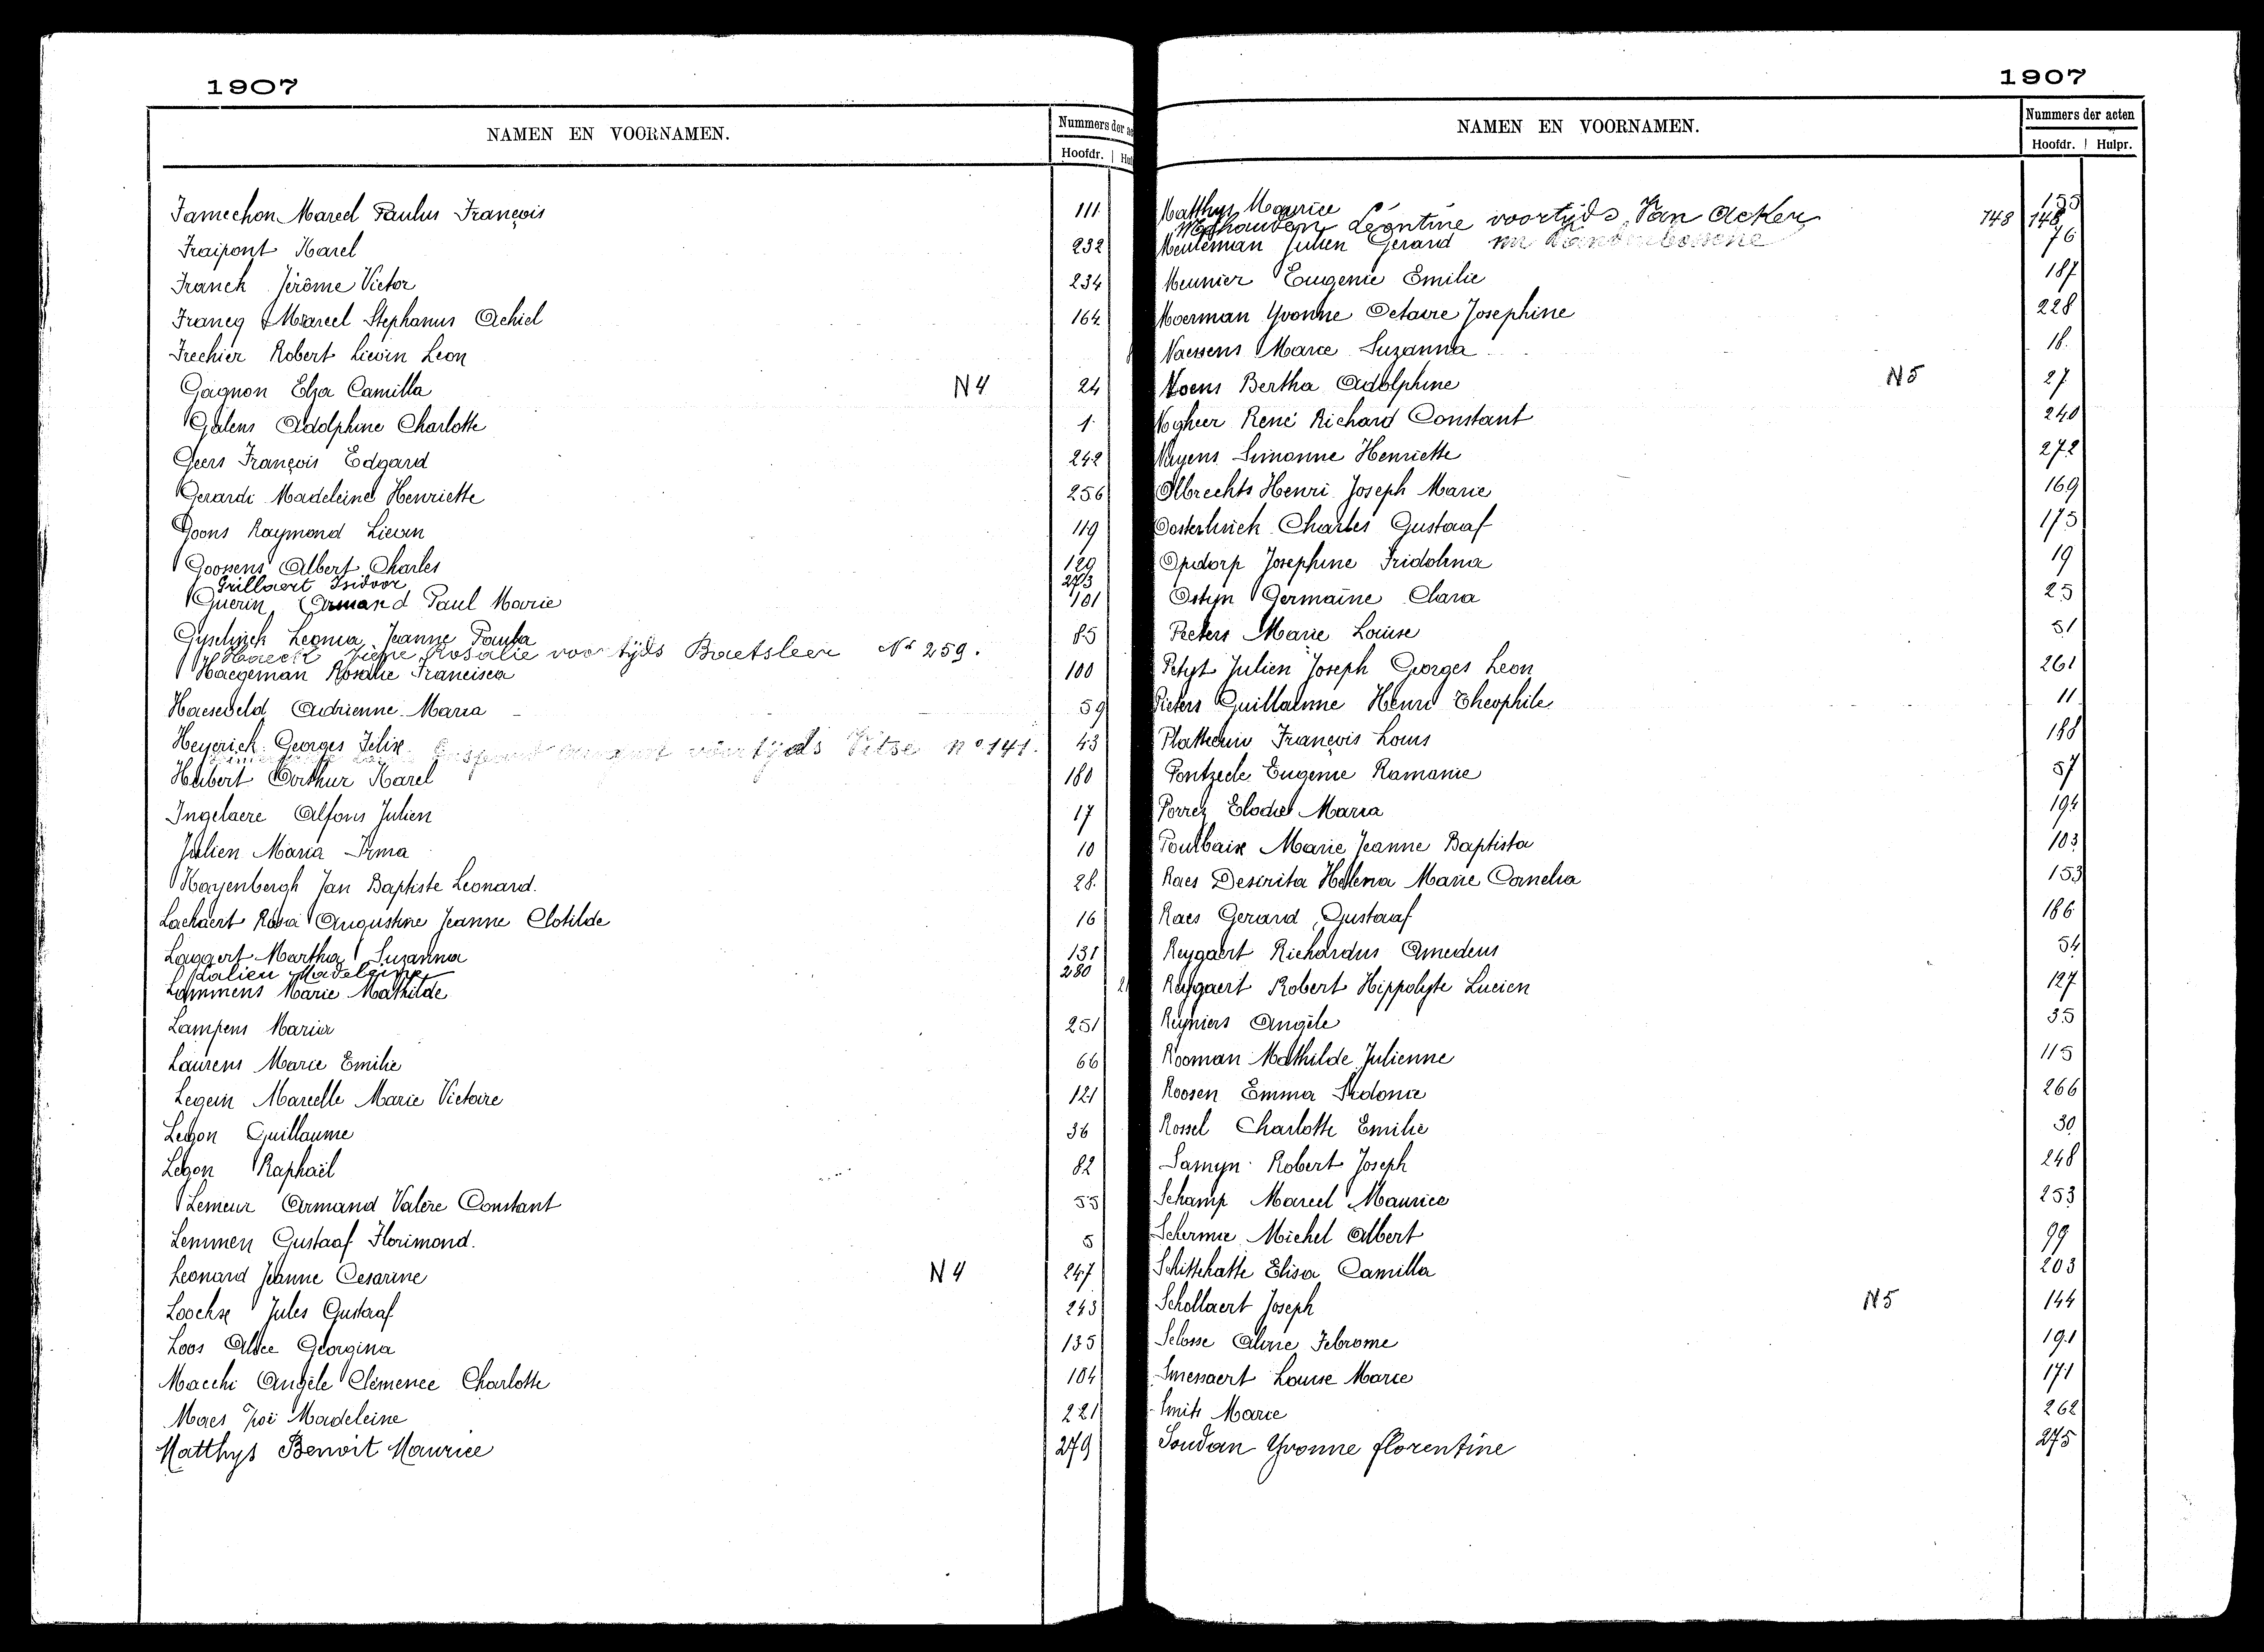 1907
NAMEN EN VOORNAMEN.
Nummers der
Hoofdr.
Famechon Marcel Paulus François 111
Fraipont Karel 232
Franck Jérôme Victor 234
Francq Marcel Stephanus Achiel 164
Frechier Robert Lievin Leon
Gagnon Elza Camilla N4 24
Galens Adolphine Charlotte 1
Geers François Edgard 242
Gerardi Madeleine Henriette 256
Goons Raymond Lievin 119
Goossens Albert Charles 129
Grillaert Isidoor 273
Guerin Armand Paul Marie 101
Gyselinck Leonia Jeanne Paula 85
Haeck Rosalie voortijds Baetsleer Nr 259.
Haegeman Rosalie Francisca 100
Haeseveld Adrienne Maria 59
Heyerick Georges Felix 43
voortijds Vitse no 141.
Hubert Arthur Karel 180
Ingelaere Alfons Julien 17
Julien Maria Irma 10
Kayenbergh Jan Baptiste Leonard. 28
Lachaert Rosa Augustine Jeanne Clotilde 16
Laggert Martha Suzanna 131
Lalieu Madeleine 280
Lammens Marie Mathilde
Lampens Maria 251
Laurens Marie Emilie 66
Legein Marcelle Marie Victoire 121
Legon Guillaume 36
Legon Raphaël 82
Lemeur Armand Valère Constant 55
Lemmen Gustaaf Florimond. 5
Leonard Jeanne Cesarine N4 247
Loockx Jules Gustaaf 243
Loos Alice Georgina 135
Macchi Angèle Clémence Charlotte 104
Maes Zoë Madeleine 221
Matthys Benoit Maurice 279
1907
NAMEN EN VOORNAMEN.
Nummers der acten
Hoofdr. Hulpr.
Matthys Maurice 155
Léontine voortijds Van Acker 148 148
Meuleman Julien Gerard 76
Meunier Eugenie Emilie 187
Moerman Yvonne Octavie Josephine 228
Naessens Marie Suzanna 18
Noens Bertha Adolphine N5 27
Nogheer René Richard Constant 240
Nuyens Simonne Henriette 272
Olbrechts Henri Joseph Marie 169
Oosterlinck Charles Gustaaf 175
Opdorp Josephine Fridolina 19
Ostyn Germaine Clara 25
Peeters Marie Louise 51
Petyt Julien Joseph Georges Leon 261
Pieters Guillaume Henri Theophile 11
Plattecuw François Louis 188
Pontzeele Eugenie Ramanie 57
Porrez Elodie Maria 194
Pourbaix Marie Jeanne Baptista 103
Raes Desirita Helena Marie Cornelia 153
Raes Gerard Gustaaf 186
Reygaert Richardus Amedeus 54
Reygaert Robert Hippolyte Lucien 127
Reyniers Angèle 35
Rooman Mathilde Julienne 115
Roosen Emma Sidonie 266
Rossel Charlotte Emilie 30
Samyn Robert Joseph 248
Schamp Marcel Maurice 253
Schermie Michel Albert 99
Schittekatte Elisa Camilla 203
Schollaert Joseph N5 144
Selosse Aline Febrome 191
Smessaert Louise Marie 171
Smits Marie 262
Soudan Yvonne florentine 275